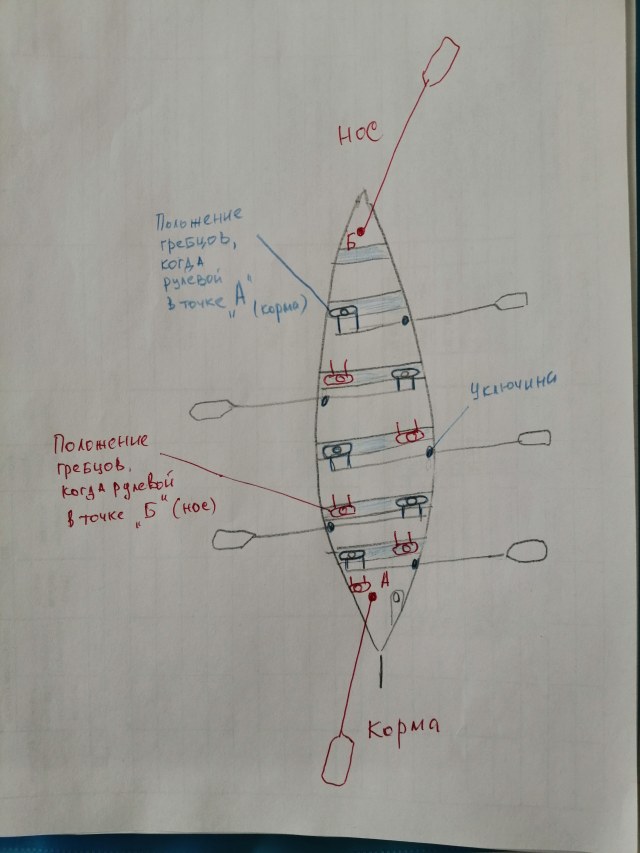 НОС
Б
Положение
гребцов,
когда
рулевой
в точке „А“ (корма)
Уключина
Положение
гребцов,
когда рулевой
в точке „Б“ (нос)
А
Корма